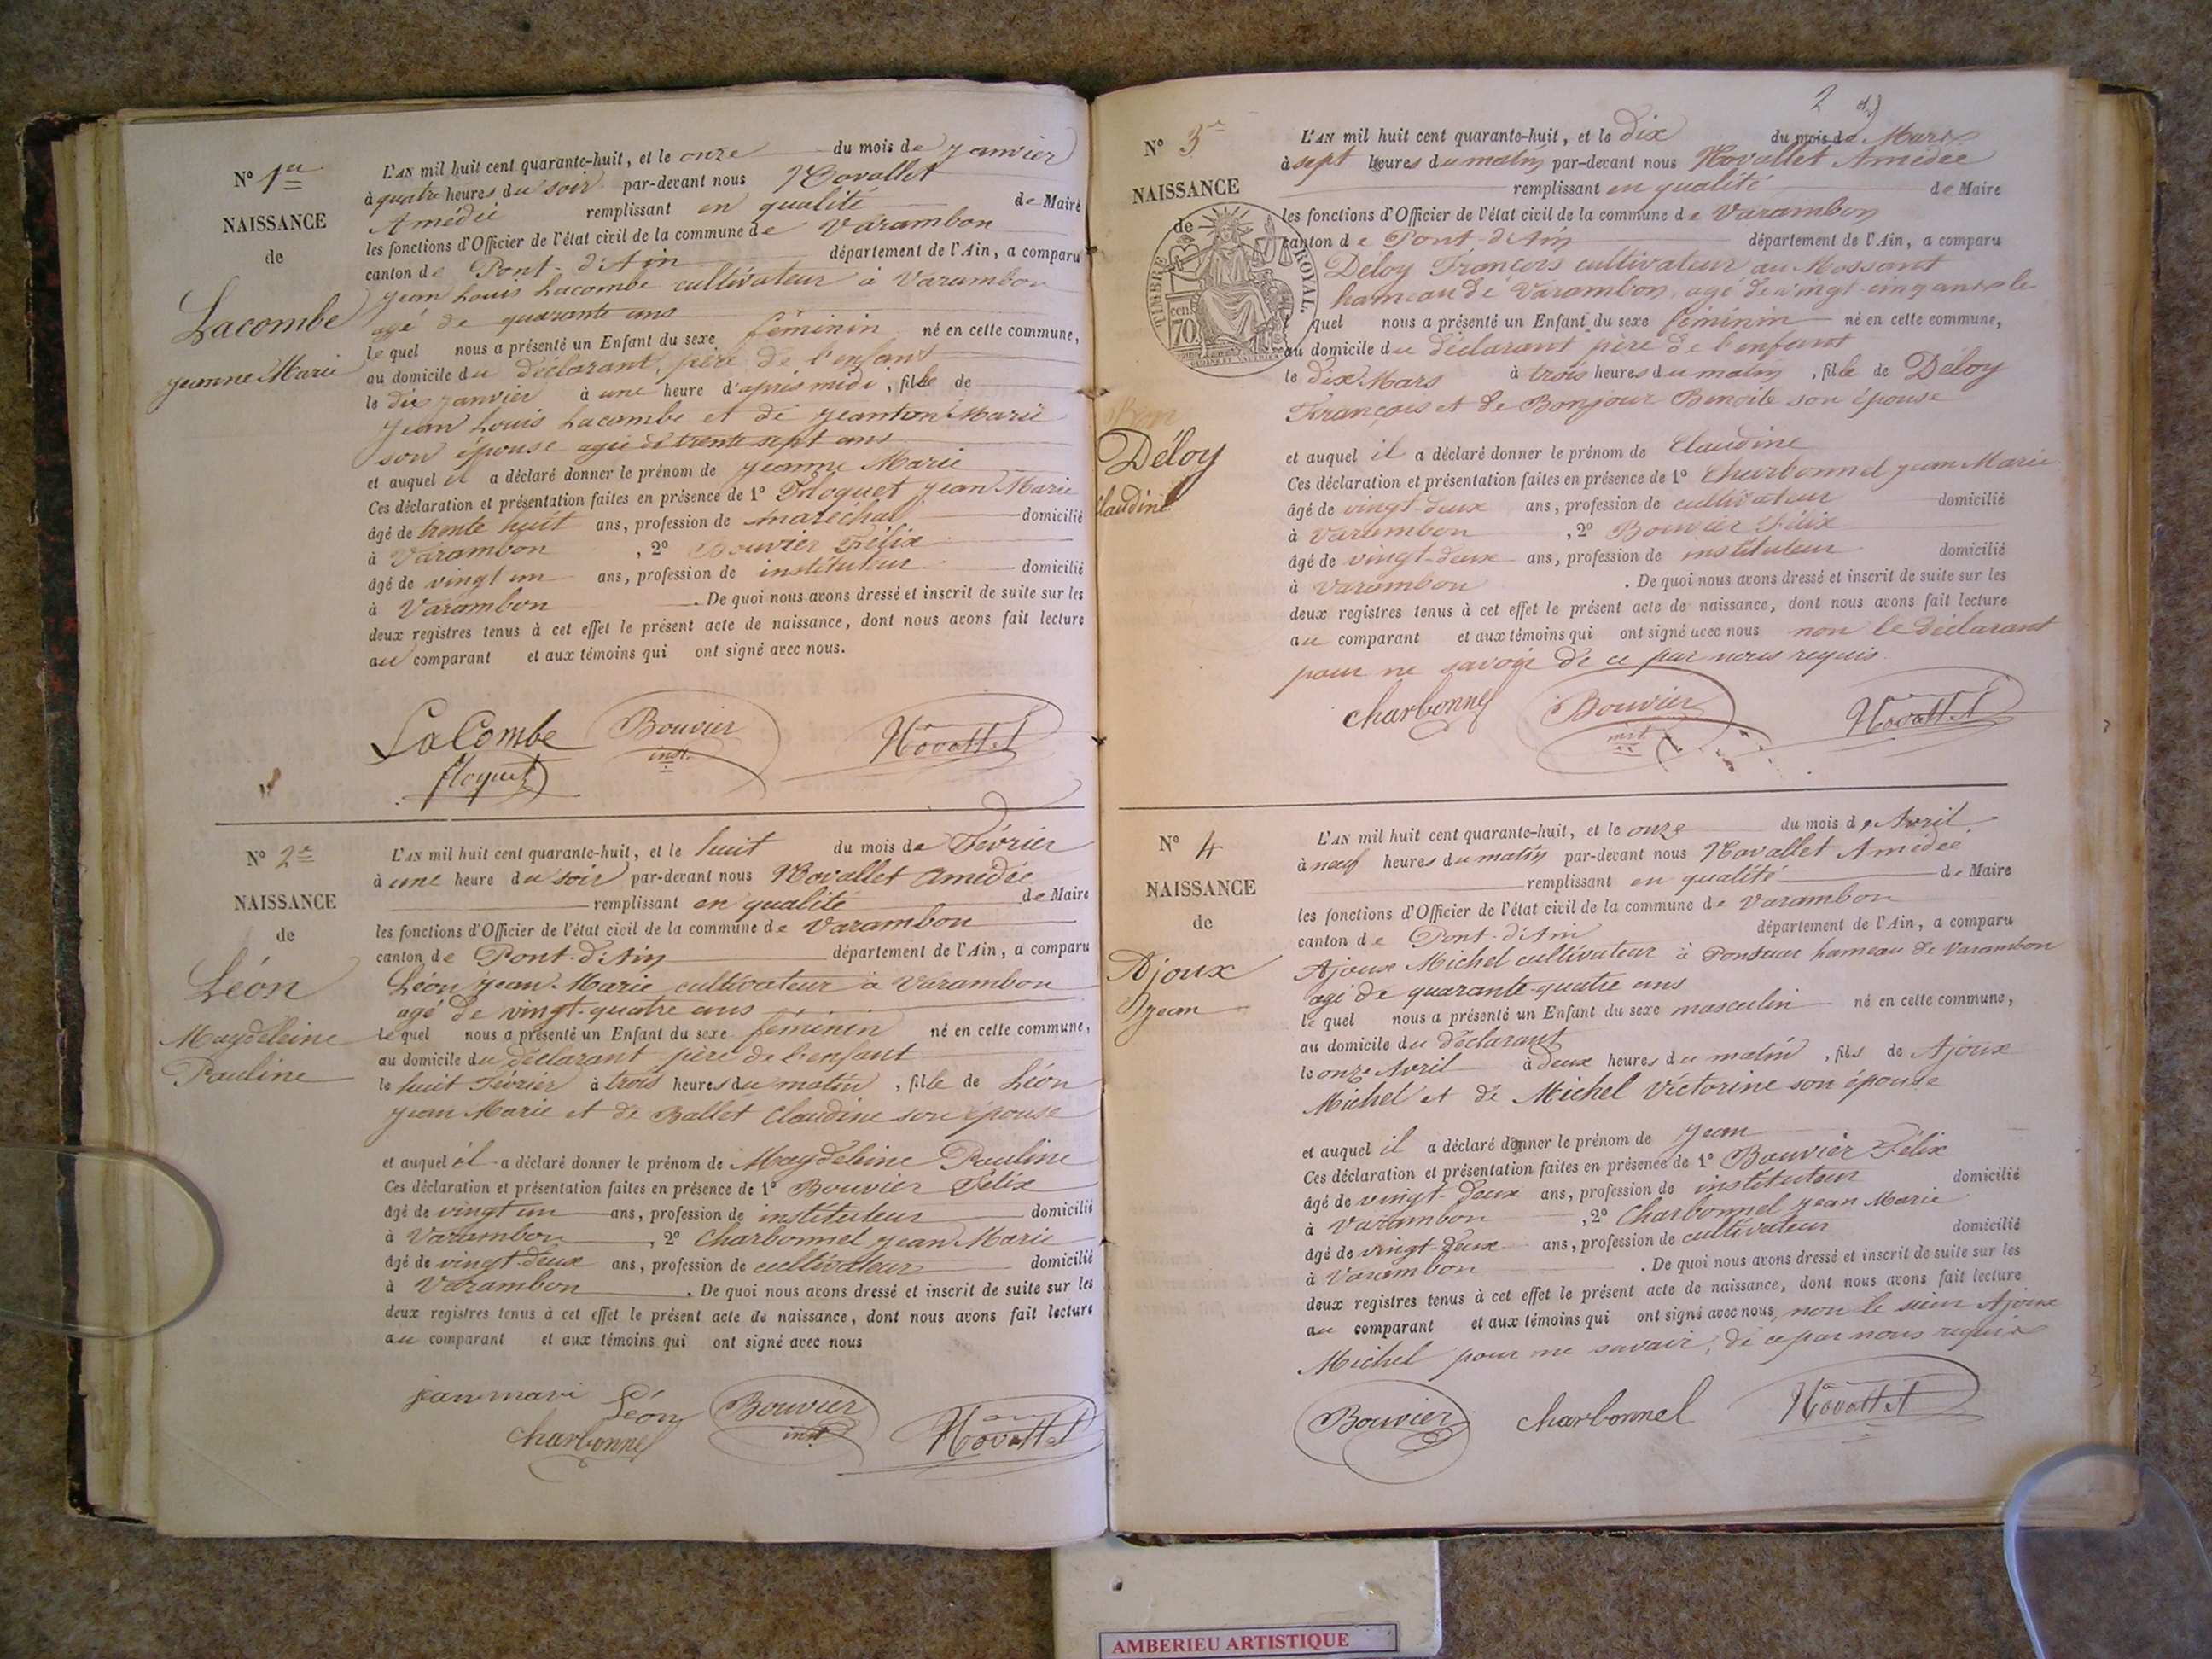 N° 1er
NAISSANCE
de
Lacombe
Jeanne Marie
L'AN mil huit cent quarante-huit, et le onze du mois de Janvier
à quatre heures du soir par-devant nous
Amédée remplissant en qualité de Maire
les fonctions d'Officier de l'état civil de la commune de Varambon
canton de Pont-d'Ain département de l'Ain, a comparu
Jean Louis Lacombe cultivateur à Varambon
agé de quarante ans
lequel nous a présenté un Enfant du sexe féminin né en cette commune,
au domicile du déclarant, père de l'enfant
le dix janvier à une heure d'après midi, fille de
Jean Louis Lacombe et de Jeanton Marie
son épouse agée de trente sept ans
et auquel il a déclaré donner le prénom de Jeanne Marie
Ces déclaration et présentation faites en présence de 1° Floquet Jean Marie
âgé de trente huit ans, profession de maréchal domicilié
à Varambon, 2° Bouvier Félix
âgé de vingt un ans, profession de instituteur domicilié
à Varambon. De quoi nous avons dressé et inscrit de suite sur les
deux registres tenus à cet effet le présent acte de naissance, dont nous avons fait lecture
au comparant et aux témoins qui ont signé avec nous.
LaCombe Bouvier
inst.
floquet
N° 2e
NAISSANCE
de
Léon
Magdeleine
Pauline
L'AN mil huit cent quarante-huit, et le huit du mois de Février
à une heure du soir par-devant nous Amédée
remplissant en qualité de Maire
les fonctions d'Officier de l'état civil de la commune de Varambon
canton de Pont-d'Ain département de l'Ain, a comparu
Léon Jean-Marie cultivateur à Varambon
agé de vingt-quatre ans
lequel nous a présenté un Enfant du sexe féminin né en cette commune,
au domicile du déclarant père de l'enfant
le huit Février à trois heures du matin, fille de Léon
Jean Marie et de Ballet Claudine son épouse
et auquel il a déclaré donner le prénom de Magdeleine Pauline
Ces déclaration et présentation faites en présence de 1° Bouvier Félix
âgé de vingt un ans, profession de instituteur domicilié
à Varambon, 2° Charbonnel Jean Marie
âgé de vingt-deux ans, profession de cultivateur domicilié
à Varambon. De quoi nous avons dressé et inscrit de suite sur les
deux registres tenus à cet effet le présent acte de naissance, dont nous avons fait lecture
au comparant et aux témoins qui ont signé avec nous
jean mari Léon Bouvier
charbonnel inst
2
N° 3e
NAISSANCE
de
TIMBRE ROYAL
70 cen
Déloy
Claudine
L'AN mil huit cent quarante-huit, et le dix du mois de Mars
à sept heures du matin par-devant nous Amédée
remplissant en qualité de Maire
les fonctions d'Officier de l'état civil de la commune de Varambon
canton de Pont-d'Ain département de l'Ain, a comparu
Déloy François cultivateur au Mossant
hameau de Varambon, agé de vingt-cinq ans le
quel nous a présenté un Enfant du sexe féminin né en cette commune,
au domicile du déclarant père de l'enfant
le dix Mars à trois heures du matin, fille de Deloy
François et de Bonjour Benoite son épouse
et auquel il a déclaré donner le prénom de Claudine
Ces déclaration et présentation faites en présence de 1° Charbonnel Jean Marie
âgé de vingt-deux ans, profession de cultivateur domicilié
à Varambon, 2° Bouvier Félix
âgé de vingt-deux ans, profession de instituteur domicilié
à Varambon. De quoi nous avons dressé et inscrit de suite sur les
deux registres tenus à cet effet le présent acte de naissance, dont nous avons fait lecture
au comparant et aux témoins qui ont signé avec nous non le déclarant
pour ne savoir de ce par nous requis.
charbonnel Bouvier
inst
N° 4
NAISSANCE
de
Ajoux
Jean
L'AN mil huit cent quarante-huit, et le onze du mois de Avril
à neuf heures du matin par-devant nous Amédée
remplissant en qualité de Maire
les fonctions d'Officier de l'état civil de la commune de Varambon
canton de Pont-d'Ain département de l'Ain, a comparu
Ajoux Michel cultivateur à hameau de Varambon
agé de quarante-quatre ans
lequel nous a présenté un Enfant du sexe masculin né en cette commune,
au domicile du déclarant
le onze Avril à deux heures du matin, fils de Ajoux
Michel et de Michel Victorine son épouse
et auquel il a déclaré donner le prénom de Jean
Ces déclaration et présentation faites en présence de 1° Bouvier Félix
âgé de vingt-deux ans, profession de instituteur domicilié
à Varambon, 2° Charbonnel Jean Marie
âgé de vingt-deux ans, profession de cultivateur domicilié
à Varambon. De quoi nous avons dressé et inscrit de suite sur les
deux registres tenus à cet effet le présent acte de naissance, dont nous avons fait lecture
au comparant et aux témoins qui ont signé avec nous, non le sieur Ajoux
Michel pour ne savoir, de ce par nous requis
Bouvier charbonnel
AMBERIEU ARTISTIQUE